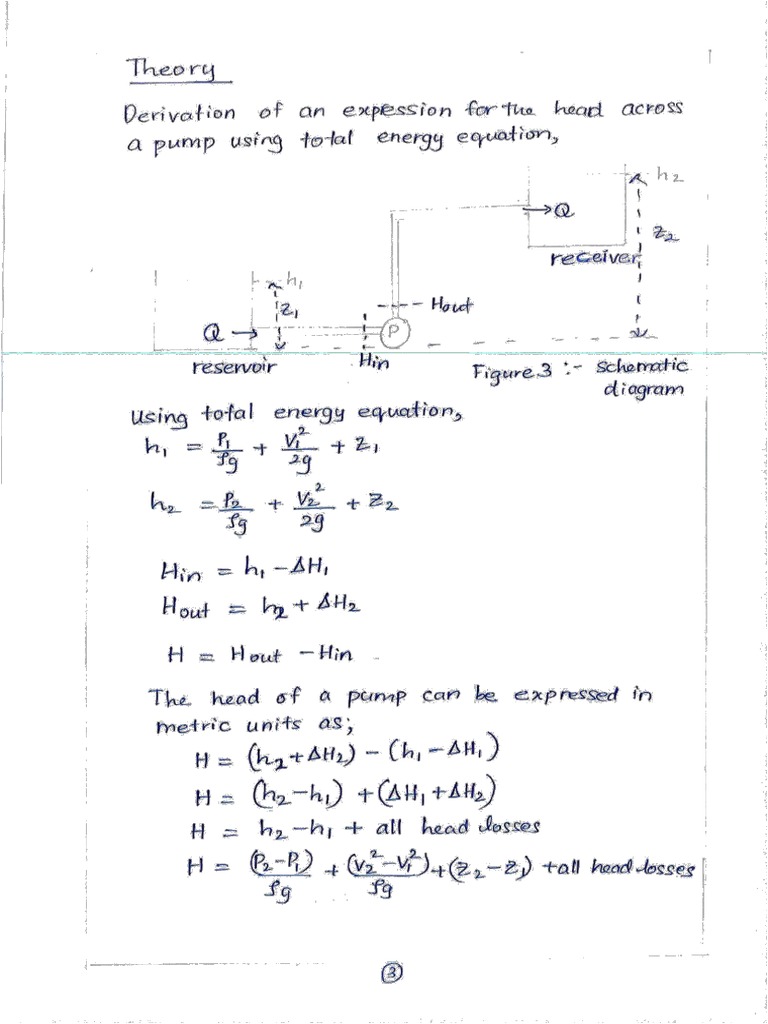 Theory
Derivation of an expession for the head across
a pump using total energy equation,
h2
Q
Z2
receiver
h1
Z1
Hout
Q
P
reservoir
Hin
Figure 3 :- Schematic
diagram
Using total energy equation,
h1 = P1/ρg + V1²/2g + Z1
h2 = P2/ρg + V2²/2g + Z2
Hin = h1 - ΔH1
Hout = h2 + ΔH2
H = Hout - Hin
The head of a pump can be expressed in
metric units as;
H = (h2 + ΔH2) - (h1 - ΔH1)
H = (h2 - h1) + (ΔH1 + ΔH2)
H = h2 - h1 + all head losses
H = (P2 - P1)/ρg + (V2² - V1²)/ρg + (Z2 - Z1) + all head losses
3